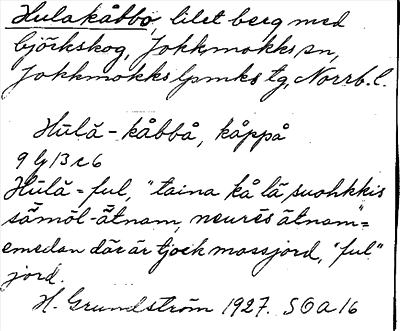 Hulakåbbo, litet berg med
björkskog, Jokkmokks sn,
Jokkmokks lpmks tg, Norrb. l.
Hŭlă-kåbbå, kåppå
9 b/3 c 6
Hŭlă = ful, "taina kå lä suohkkis
sämöl-ätnam, neurēs ätnam =
emedan där är tjock mossjord, "ful"
jord.
H. Grundström 1927. SOA 16